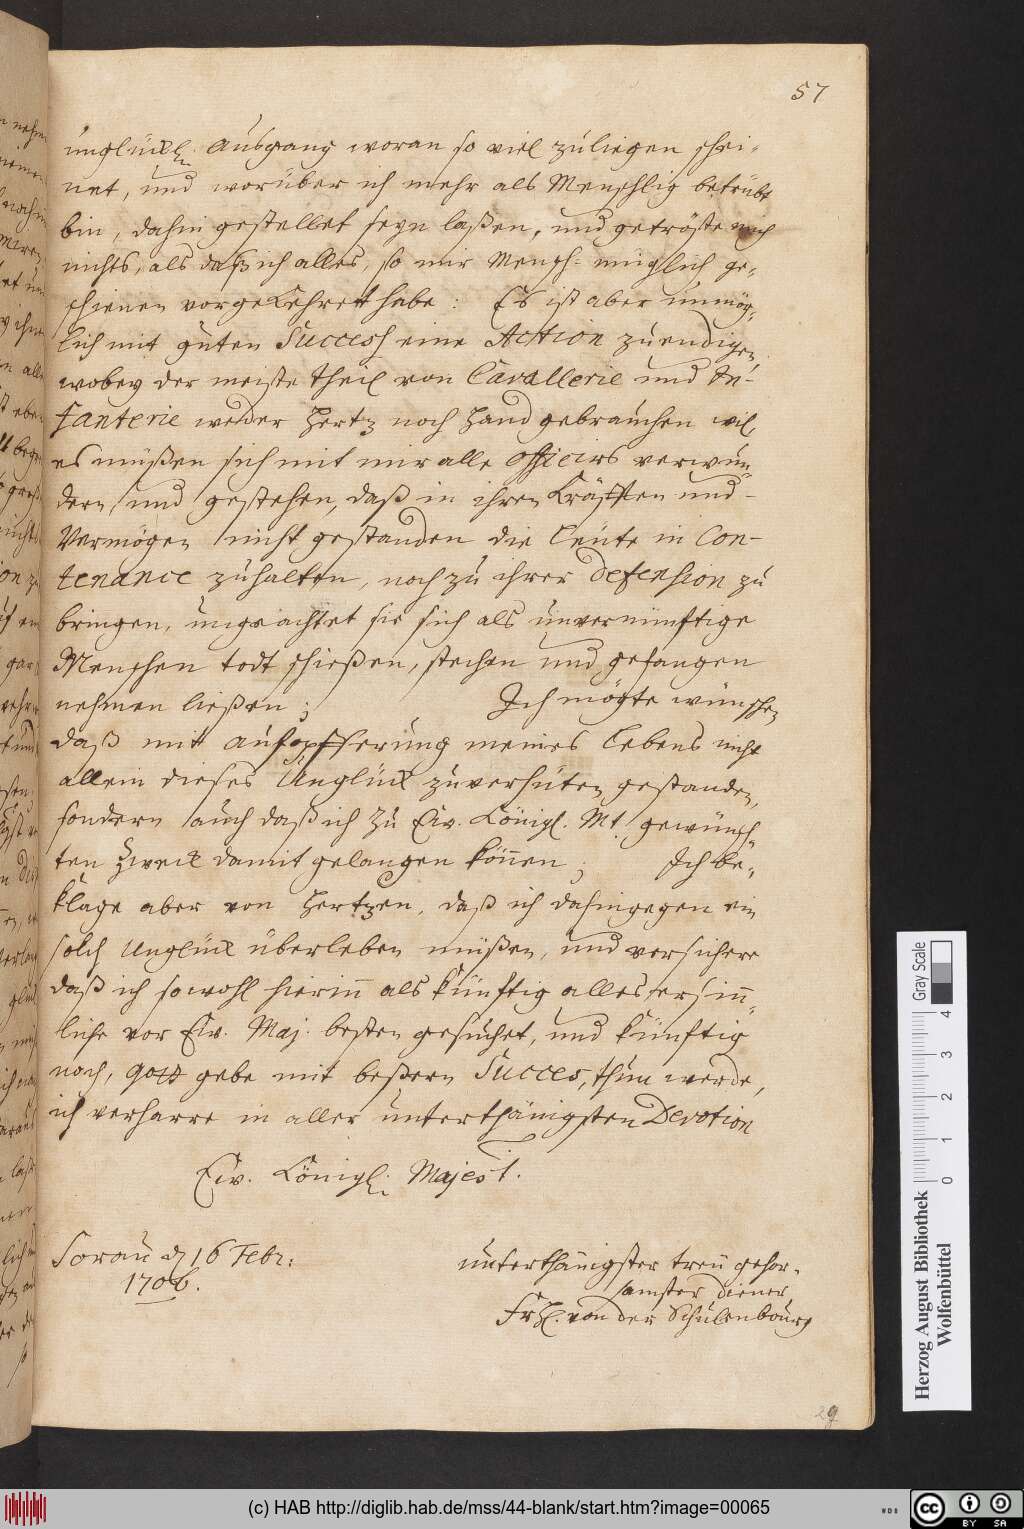 57
unglückl. Ausgang woran so viel zuliegen schei-
net, und worüber ich mehr als Menschlig betrübt
bin, dahin gestellet seyn laßen, und getröste mich
nichts, als daß ich alles, so mir Mensch- müglich ge-
schienen vorgekehret habe: Es ist aber unmög-
lich mit guten Success eine Action zuendigen,
wobey der meiste theil von Cavallerie und In-
fanterie weder Hertz noch Hand gebrauchen wil,
es müßen sich mit mir alle Officirs verwun-
dern, und gestehen, daß in ihren Kräfften und
Vermögen nicht gestanden die Leute in Con-
tenance zuhalten, noch zu ihrer Defension zu
bringen, ungeachtet sie sich als unvernünftige
Menschen todt schießen, stechen und gefangen
nehmen ließen; Ich mögte wünschen
daß mit aufopfferung meines Lebens nicht
allein dieses Unglück zuverhüten gestanden,
sondern auch daß ich zu Ew. Königl. Mt. gewünsch-
ten Zweck damit gelangen können; Ich be-
klage aber von Hertzen, daß ich dahingegen ein
solch Unglück überleben müßen, und versichere
daß ich sowohl hierin als künftig alles ersinn-
liche vor Ew. Maj. besten gesuchet, und künftig
noch, Gott gebe mit beßern Succes, thun werde,
ich verharre in aller unterthänigsten Devotion
Ew. Königl. Majest.
Sorau d 16 Febr:
1706.
unterthänigster treu gehor-
samster diener
von der Schulenbourg
29
Gray Scale
0 1 2 3 4
Herzog August Bibliothek
Wolfenbüttel
(c) HAB http://diglib.hab.de/mss/44-blank/start.htm?image=00065
WDB
cc BY SA